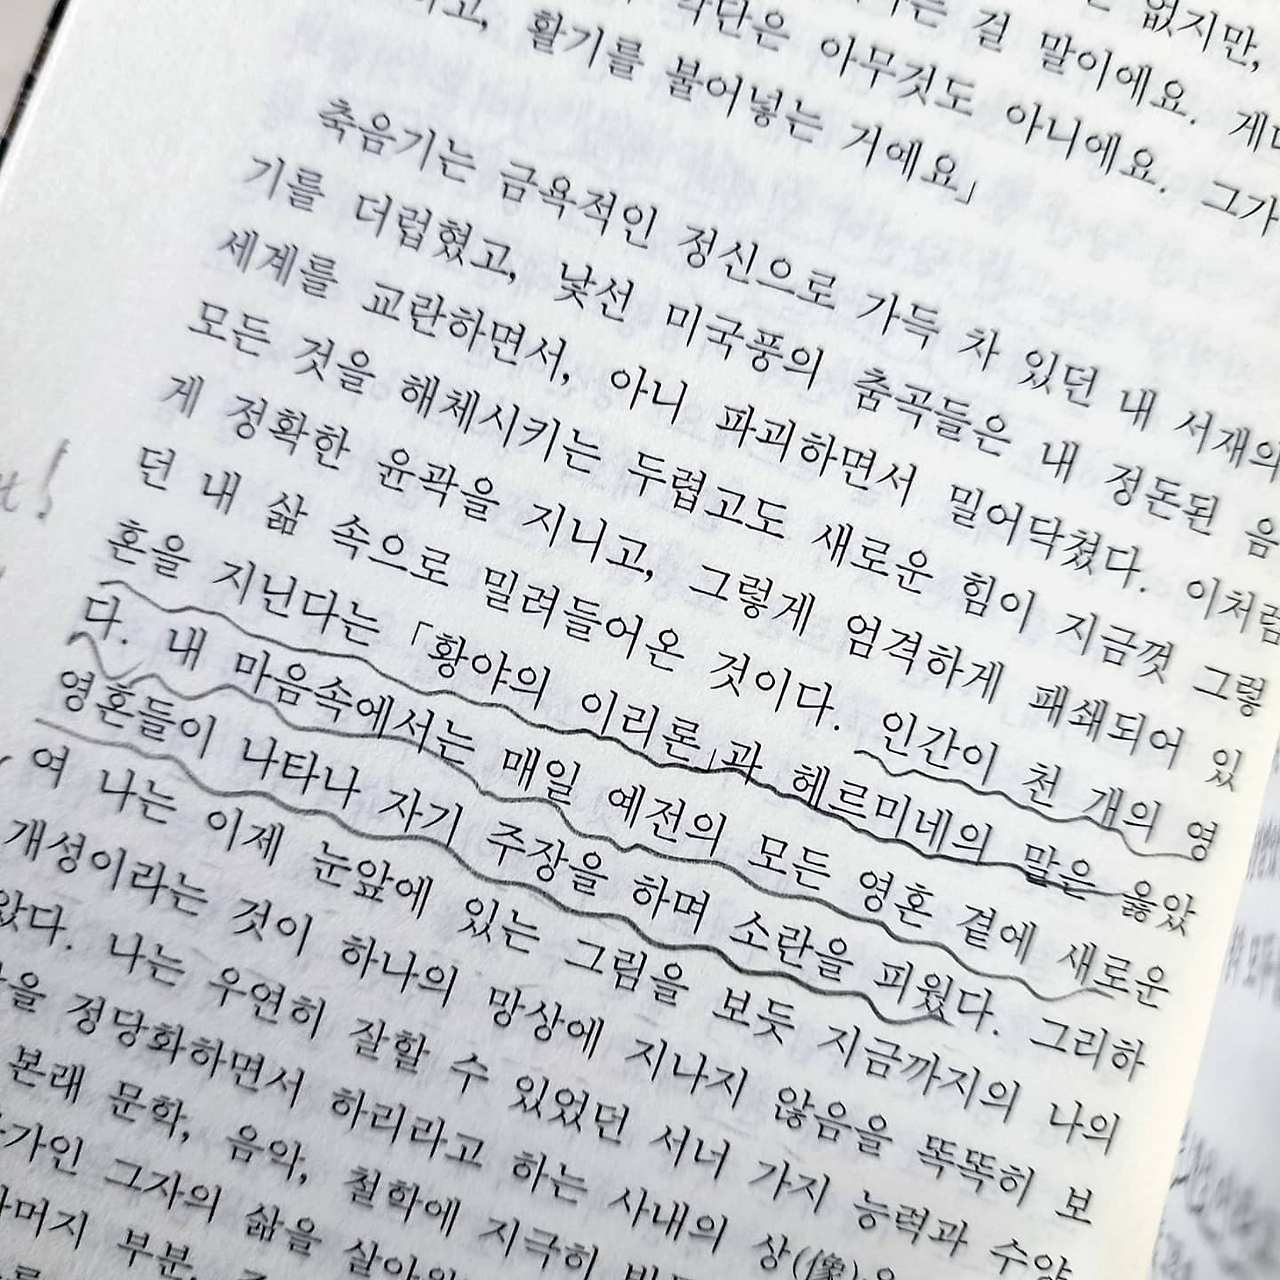 없지만,
는 걸 말이에요. 게다
악단은 아무것도 아니에요. 그가
고, 활기를 불어넣는 거예요」
축음기는 금욕적인 정신으로 가득 차 있던 내 서재의
기를 더럽혔고, 낯선 미국풍의 춤곡들은 내 정돈된 음
세계를 교란하면서, 아니 파괴하면서 밀어닥쳤다. 이처럼
모든 것을 해체시키는 두렵고도 새로운 힘이 지금껏 그렇
게 정확한 윤곽을 지니고, 그렇게 엄격하게 폐쇄되어 있
던 내 삶 속으로 밀려들어온 것이다. 인간이 천 개의 영
혼을 지닌다는 「황야의 이리론」과 헤르미네의 말은 옳았
다. 내 마음속에서는 매일 예전의 모든 영혼 곁에 새로운
영혼들이 나타나 자기 주장을 하며 소란을 피웠다. 그리하
여 나는 이제 눈앞에 있는 그림을 보듯 지금까지의 나의
개성이라는 것이 하나의 망상에 지나지 않음을 똑똑히 보
았다. 나는 우연히 잘할 수 있었던 서너 가지 능력과 수양
을 정당화하면서 하리라고 하는 사내의 상(像)을
본래 문학, 음악, 철학에 지극히
가인 그자의 삶을
나머지 부분,